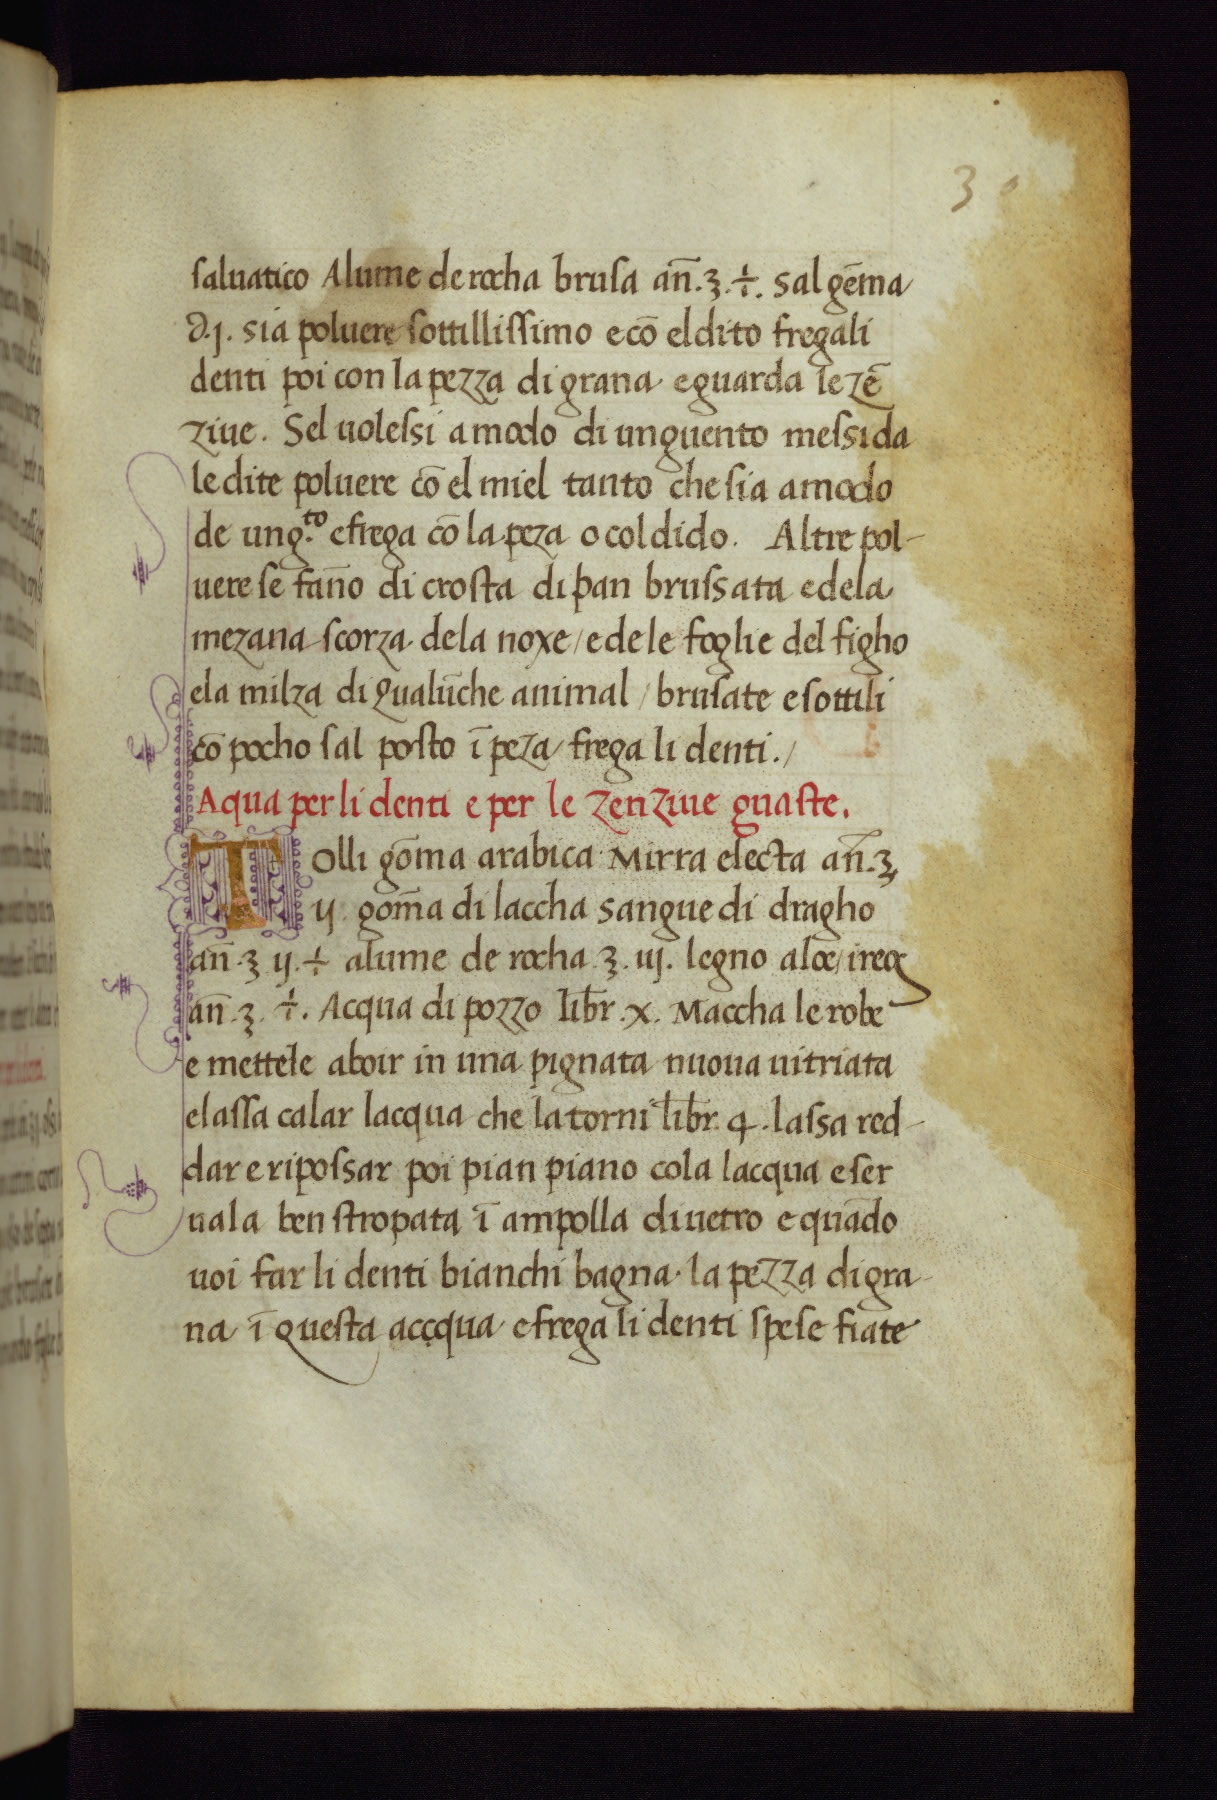 30
saluatico Alume de rocha brusa an̄.ʒ.÷. sal gēma
∂.j. sia poluere sottillissimo e cō el dito fregali
denti poi con la pezza di grana e guarda le zē
ziue. Sel uolessi a modo di unguento messida
le dite poluere cō el miel tanto che sia a modo
de ung.to e frega cō la peza o col dido. Altre pol-
uere se fan̄o di crosta di pan brussata e dela
mezana scorza dela noxe / e dele foglie del figho
e la milza di qualūche animal / brusate e sottili
cō pocho sal posto ī peza / frega li denti./
Aqua per li denti e per le zenziue guaste.
Tolli gōma arabica Mirra electa an̄.ʒ
ij gom̄a di laccha sangue di dragho
an̄.ʒ ij.÷ alume de rocha ʒ.iij. legno aloe / ireos
an̄.ʒ.÷. Acqua di pozzo libr.x. Maccha le robe
e mettele aboir in una pignata nuoua uitriata
e lassa calar lacqua che la torni libr. 4. lassa red-
dar e ripossar poi pian piano cola lacqua e ser
uala ben stropata ī ampolla di uetro e quādo
uoi far li denti bianchi bagna la pezza di gra
na ī questa accqua e frega li denti spese fiate